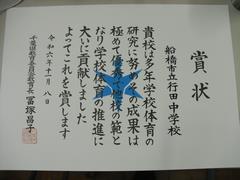 賞状
船橋市立行田中学校
貴校は多年学校体育の
研究に努めその成果は
極めて優秀で他校の範と
なり学校体育の推進に
大いに貢献しました
よってこれを賞します
令和六年十一月八日
千葉県教育委員会教育長 冨塚昌子